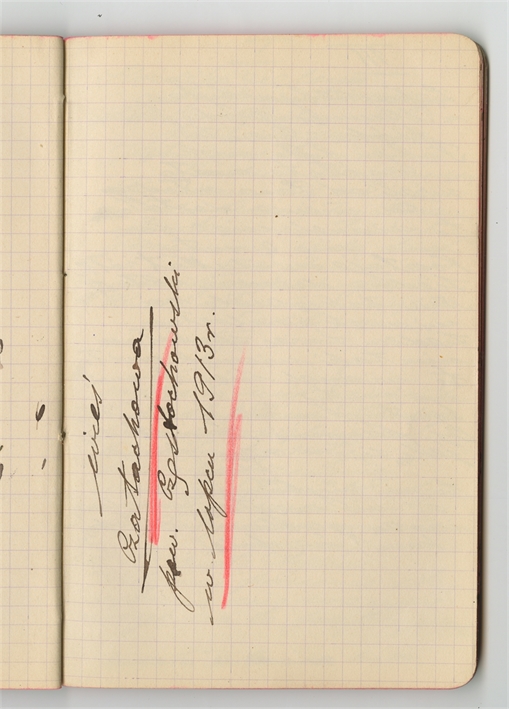 wieś
Czatachowa
pow. Częstochowski
w lipcu 1913 r.